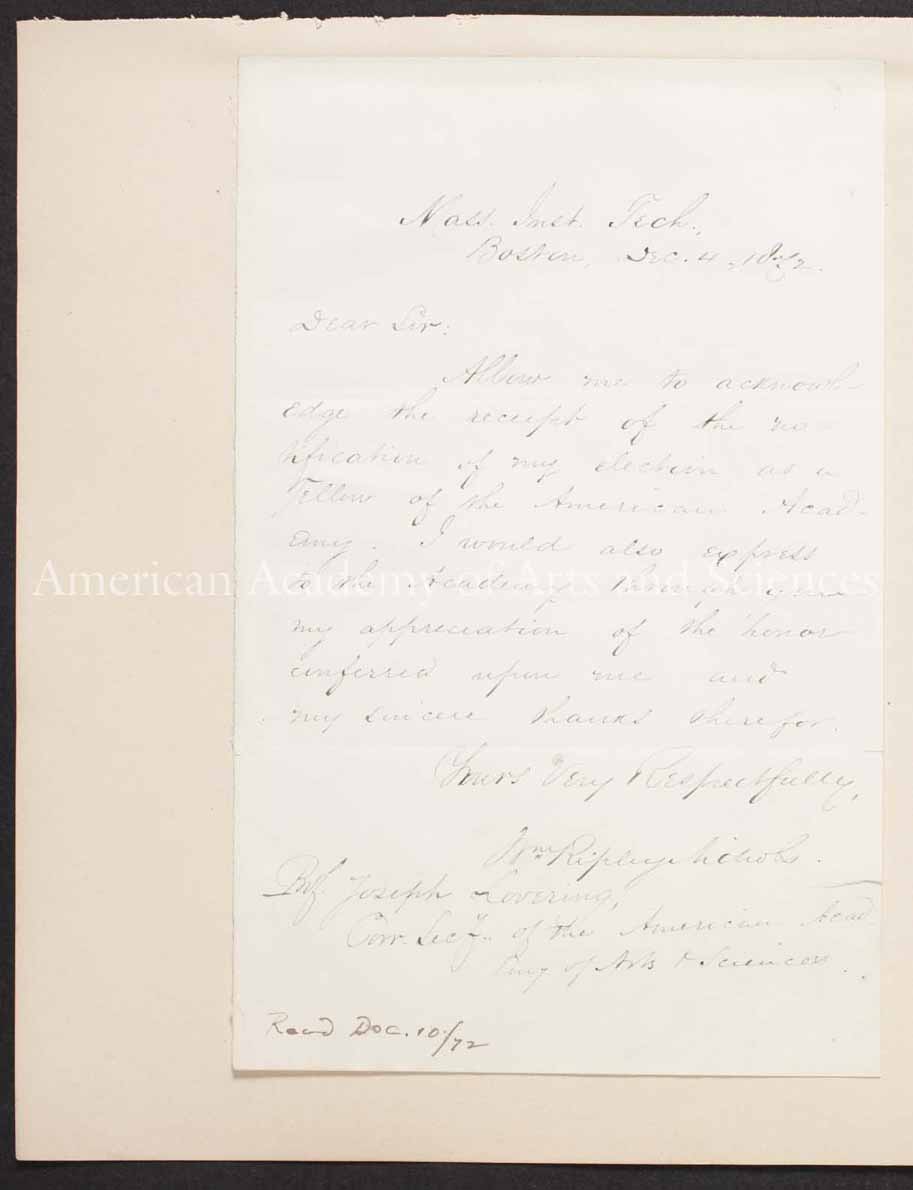 Mass. Inst. Tech.,
Boston, Dec. 4, 1872.
Dear Sir:
Allow me to acknowl-
edge the receipt of the no-
tification of my election as a
Fellow of the American Acad-
emy. I would also express
to the Academy through you
my appreciation of the honor
conferred upon me and
my sincere thanks therefor.
Yours Very Respectfully,
Wm Ripley Nichols.
Prof. Joseph Lovering,
Corr. Sec'y. of the American Acad-
emy of Arts & Sciences.
Read Dec. 10/72
American Academy of Arts and Sciences